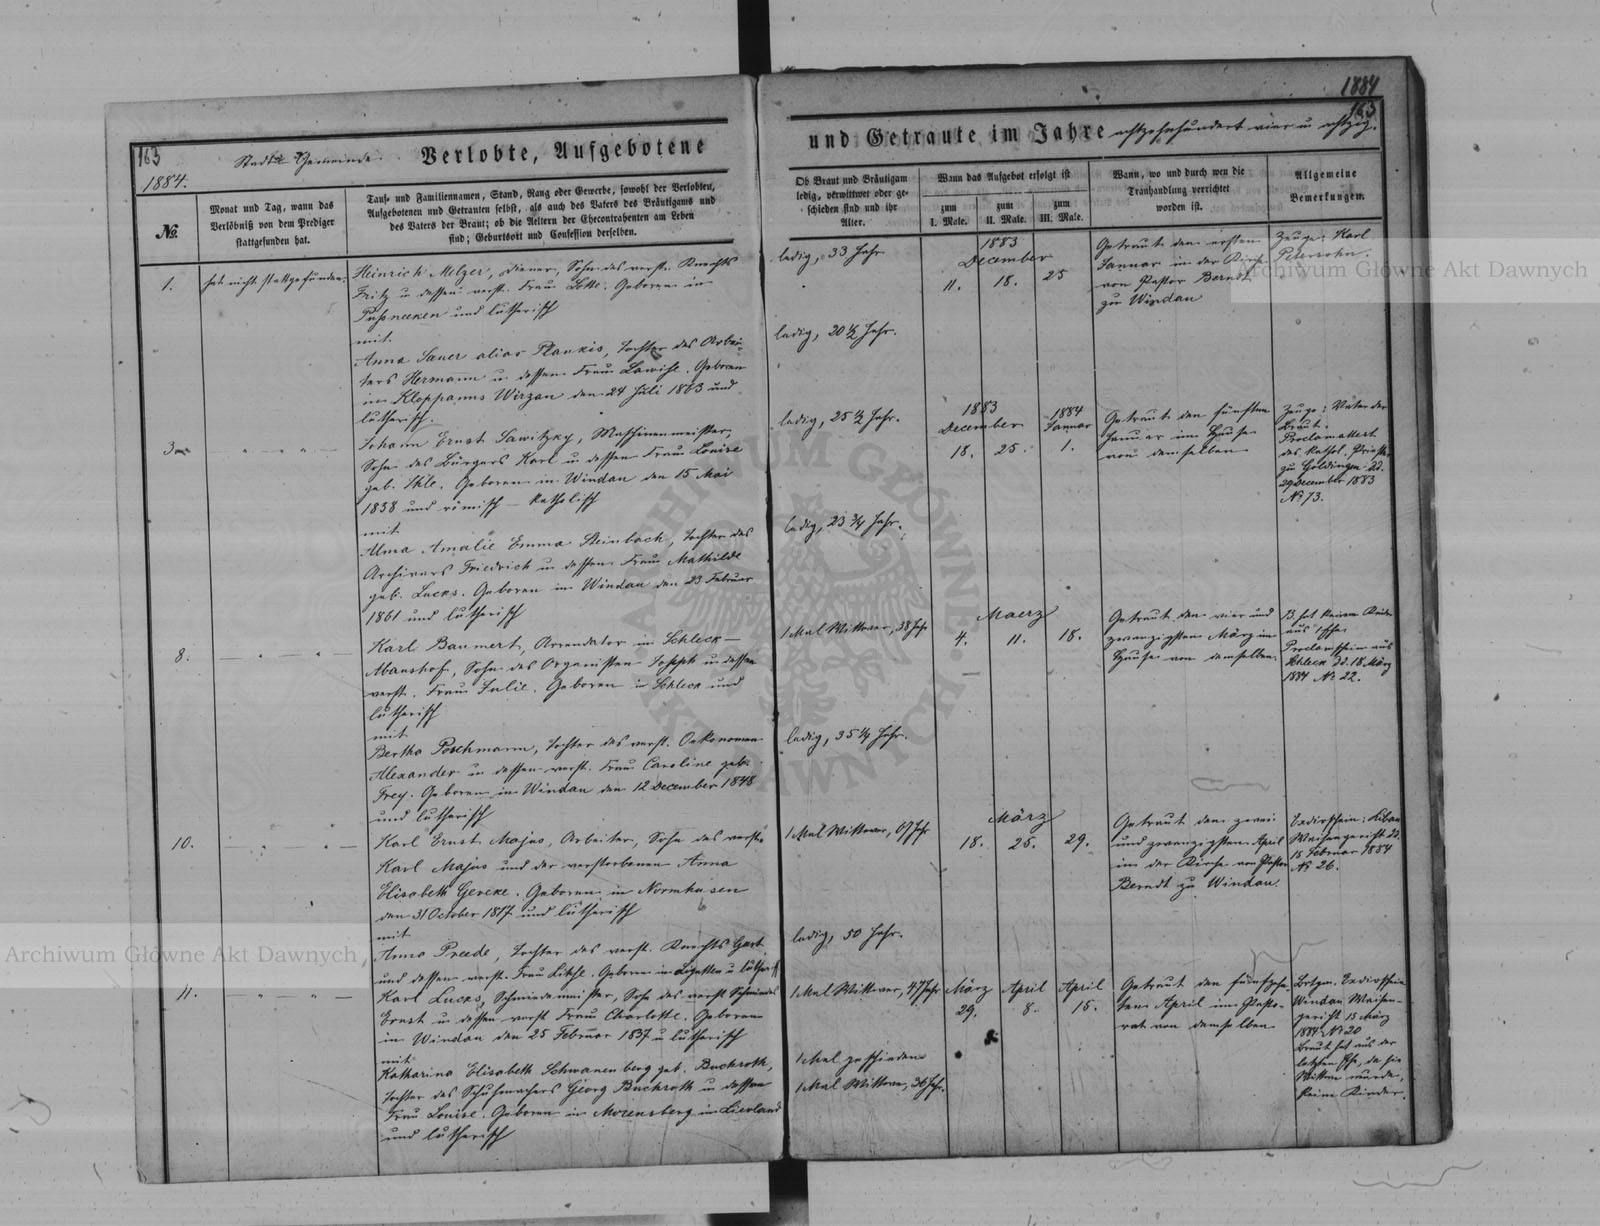 1884
163
163
1884.
Stadt Gemeinde. Verlobte, Aufgebotene
und Getraute im Jahre achtzehnhundert vier u achtzig.
№.
Monat und Tag, wann das
Verlöbniß von dem Prediger
stattgefunden hat.
Tauf- und Familiennamen, Stand, Rang oder Gewerbe, sowohl der Verlobten,
Aufgebotenen und Getrauten selbst, als auch des Vaters des Bräutigams und
des Vaters der Braut; ob die Aeltern der Ehecontrahenten am Leben
sind; Geburtsort und Confession derselben.
Ob Braut und Bräutigam
ledig, verwittwet oder ge-
schieden sind und ihr
Alter.
Wann das Aufgebot erfolgt ist
zum
I. Male.
zum
II. Male.
zum
III. Male.
Wann, wo und durch wen die
Trauhandlung verrichtet
worden ist.
Allgemeine
Bemerkungen.
1.
hat nicht stattgefunden.
Heinrich Melzer, Diener, Sohn des verst. Knechts
Fritz u dessen verst. Frau Lotte. Geboren in
Pussneeken und lutherisch
mit
Anna Sauer alias Plankis, Tochter des Arbei-
ters Hermann u dessen Frau Lawise. Geboren
in Kloppmanns Wirzau den 24 Juli 1863 und
lutherisch.
ledig, 33 Jahr
ledig, 20 1/2 Jahr.
1883
December
11. 18. 25
Getraut den ersten
Januar in der Kirche
von Pastor Berndt
zu Windau
Zeuge: Karl
Petersohn.
3
Johann Ernst Sawitzky, Maschinenmeister,
Sohn des Bürgers Karl u dessen Frau Louise
geb. Ihle. Geboren in Windau den 15 Mai
1858 und römisch-katholisch
mit
Alma Amalie Emma Steinbach, Tochter des
Archivars Friedrich u dessen Frau Mathilde
geb. Lucks. Geboren in Windau den 23 Februar
1861 und lutherisch
ledig, 25 1/2 Jahr.
ledig, 23 3/4 Jahr.
1883
December
1884
Januar
18. 25. 1.
Getraut den fünften
Januar im Hause
von demselben
Zeuge: Vater der
Braut.
Proclamattest
des kathol. Priesters
zu Goldingen dd.
29 December 1883
№ 73.
8.
Karl Baumert, Arrendator in Schleck-
Abaushof, Sohn des Organisten Joseph u dessen
verst. Frau Julie. Geboren in Schleck und
lutherisch
mit
Bertha Poschmann, Tochter des verst. Oekonomen
Alexander u dessen verst. Frau Caroline geb.
Frey. Geboren in Windau den 12 December 1848
und lutherisch
1 Mal Wittwer, 38 Jahr
ledig, 35 1/4 Jahr.
Maerz
4. 11. 18.
Getraut den vier und
zwanzigsten März im
Hause von demselben
B. hat keine Kinder
aus I Ehe.
Proclamschein aus
Schleck dd. 18 März
1884 № 22.
10.
Karl Ernst Majus, Arbeiter, Sohn des verst.
Karl Majus und der verstorbenen Anna
Elisabeth Gercke. Geboren in Normhusen
den 31 October 1817 und lutherisch
mit
Anna Preede, Tochter des verst. Knechts Gert
und dessen verst. Frau Libse. Geboren in Ligutten u lutherisch
1 Mal Wittwer, 67 Jahr
ledig, 50 Jahr.
März
18. 25. 29.
Getraut den zwei
und zwanzigsten April
in der Kirche von Pastor
Berndt zu Windau.
Exdirschein: Libau
Waisengericht dd.
15 Februar 1884
№ 26.
11.
Karl Lucks, Schmiedemeister, Sohn des verst Schmieds
Ernst u dessen verst Frau Charlotte. Geboren
in Windau den 25 Februar 1837 u lutherisch
mit
Katharina Elisabeth Schwanenberg geb. Buchroth,
Tochter des Schuhmachers Georg Buchroth u dessen
Frau Louise. Geboren in Morensberg in Livland
und lutherisch
1 Mal Wittwer, 47 Jahr
1 Mal geschieden
1 Mal Wittwe, 36 Jahr.
März April April
29. 8. 15.
Getraut den fünfzehn-
ten April im Pasto-
rat von demselben
Exdirschein
Windau Waisen-
gericht 13 März
1884 № 20
Braut hat aus der
letzten Ehe, da sie
Wittwe wurde,
keine Kinder.
Archiwum Główne Akt Dawnych
Archiwum Główne Akt Dawnych
ARCHIWUM GŁÓWNE AKT DAWNYCH